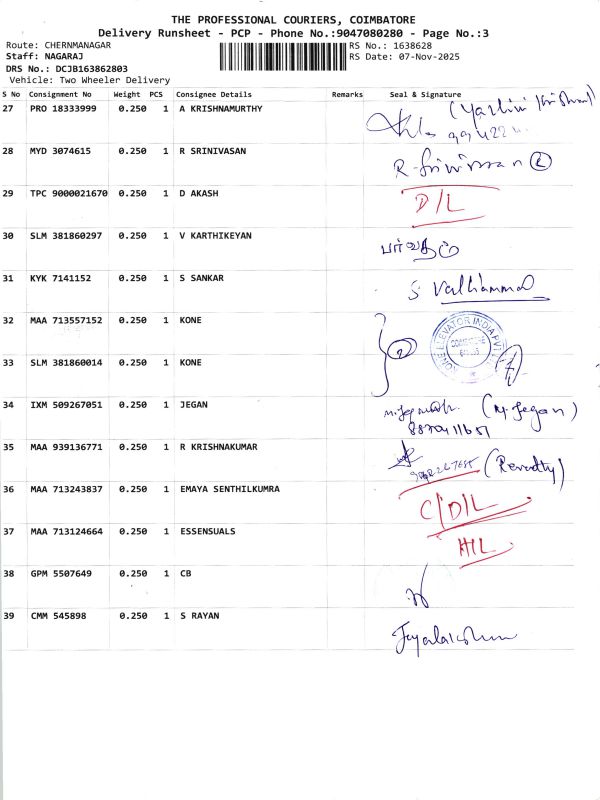 THE PROFESSIONAL COURIERS, COIMBATORE
Delivery Runsheet - PCP - Phone No.:9047080280 - Page No.:3
Route: CHERNMANAGAR RS No.: 1638628
Staff: NAGARAJ RS Date: 07-Nov-2025
DRS No.: DCJB163862803
Vehicle: Two Wheeler Delivery
S No Consignment No Weight PCS Consignee Details Remarks Seal & Signature
27 PRO 18333999 0.250 1 A KRISHNAMURTHY
28 MYD 3074615 0.250 1 R SRINIVASAN
29 TPC 9000021670 0.250 1 D AKASH D/L
30 SLM 381860297 0.250 1 V KARTHIKEYAN
31 KYK 7141152 0.250 1 S SANKAR S Valliammal
32 MAA 713557152 0.250 1 KONE KONE ELEVATOR INDIA PVT
33 SLM 381860014 0.250 1 KONE 2
34 IXM 509267051 0.250 1 JEGAN (M. Jegan)
35 MAA 939136771 0.250 1 R KRISHNAKUMAR
36 MAA 713243837 0.250 1 EMAYA SENTHILKUMRA C/D/L
37 MAA 713124664 0.250 1 ESSENSUALS H/L
38 GPM 5507649 0.250 1 CB
39 CMM 545898 0.250 1 S RAYAN